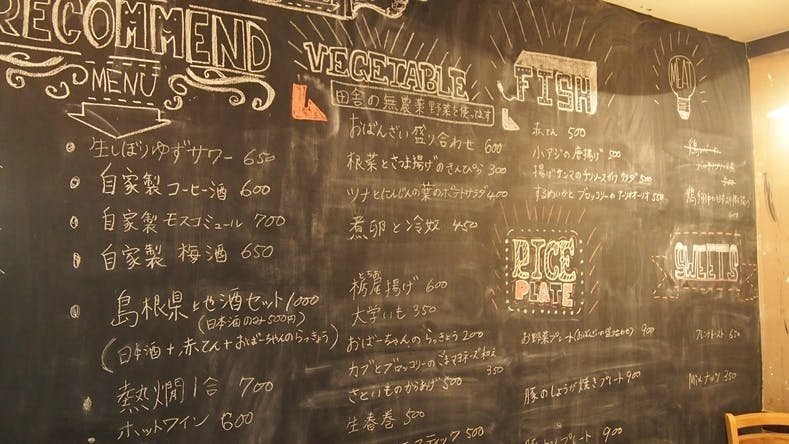 RECOMMEND
MENU
生しぼりゆずサワー 650
自家製 コーヒー酒 600
自家製 モスコミュール 700
自家製 梅酒 650
島根県 とや酒セット 1000
(日本酒のみ500円)
(日本酒+赤てん+おばーちゃんのらっきょう)
熱燗 1合 700
ホットワイン 600
VEGETABLE
田舎の無農薬野菜を使ってます
おばんざい盛り合わせ 600
根菜とさつま揚げのきんぴら 300
ツナとにんじんの葉のポテトサラダ 400
煮卵と冷奴 450
栃尾揚げ 600
とちお
大学いも 350
おばーちゃんのらっきょう 200
カブとブロッコリーのごまマヨネーズ和え
350
さといものからあげ 500
生春巻 500
スティック 500
FISH
赤てん 500
小アジの唐揚げ 500
揚げサンマのチリソースがけサラダ 500
するめいかとブロッコリーのアーリオオーリオ 550
RICE
PLATE
お野菜プレート(おばんざいの盛り合わせ) 900
豚のしょうが焼きプレート 900
プレート 900
MEAT
鶏
600
SWEETS
フレンチトースト 650
Mixナッツ 350